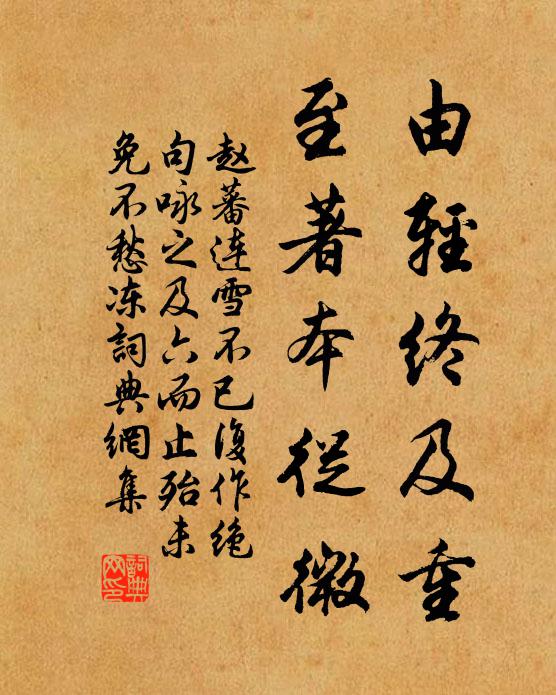 由輕終及重
至著本從微
赵蕃连雪不已復作绝
句咏之及六而止殆未
免不愁冻詞典網集
詞典
网印